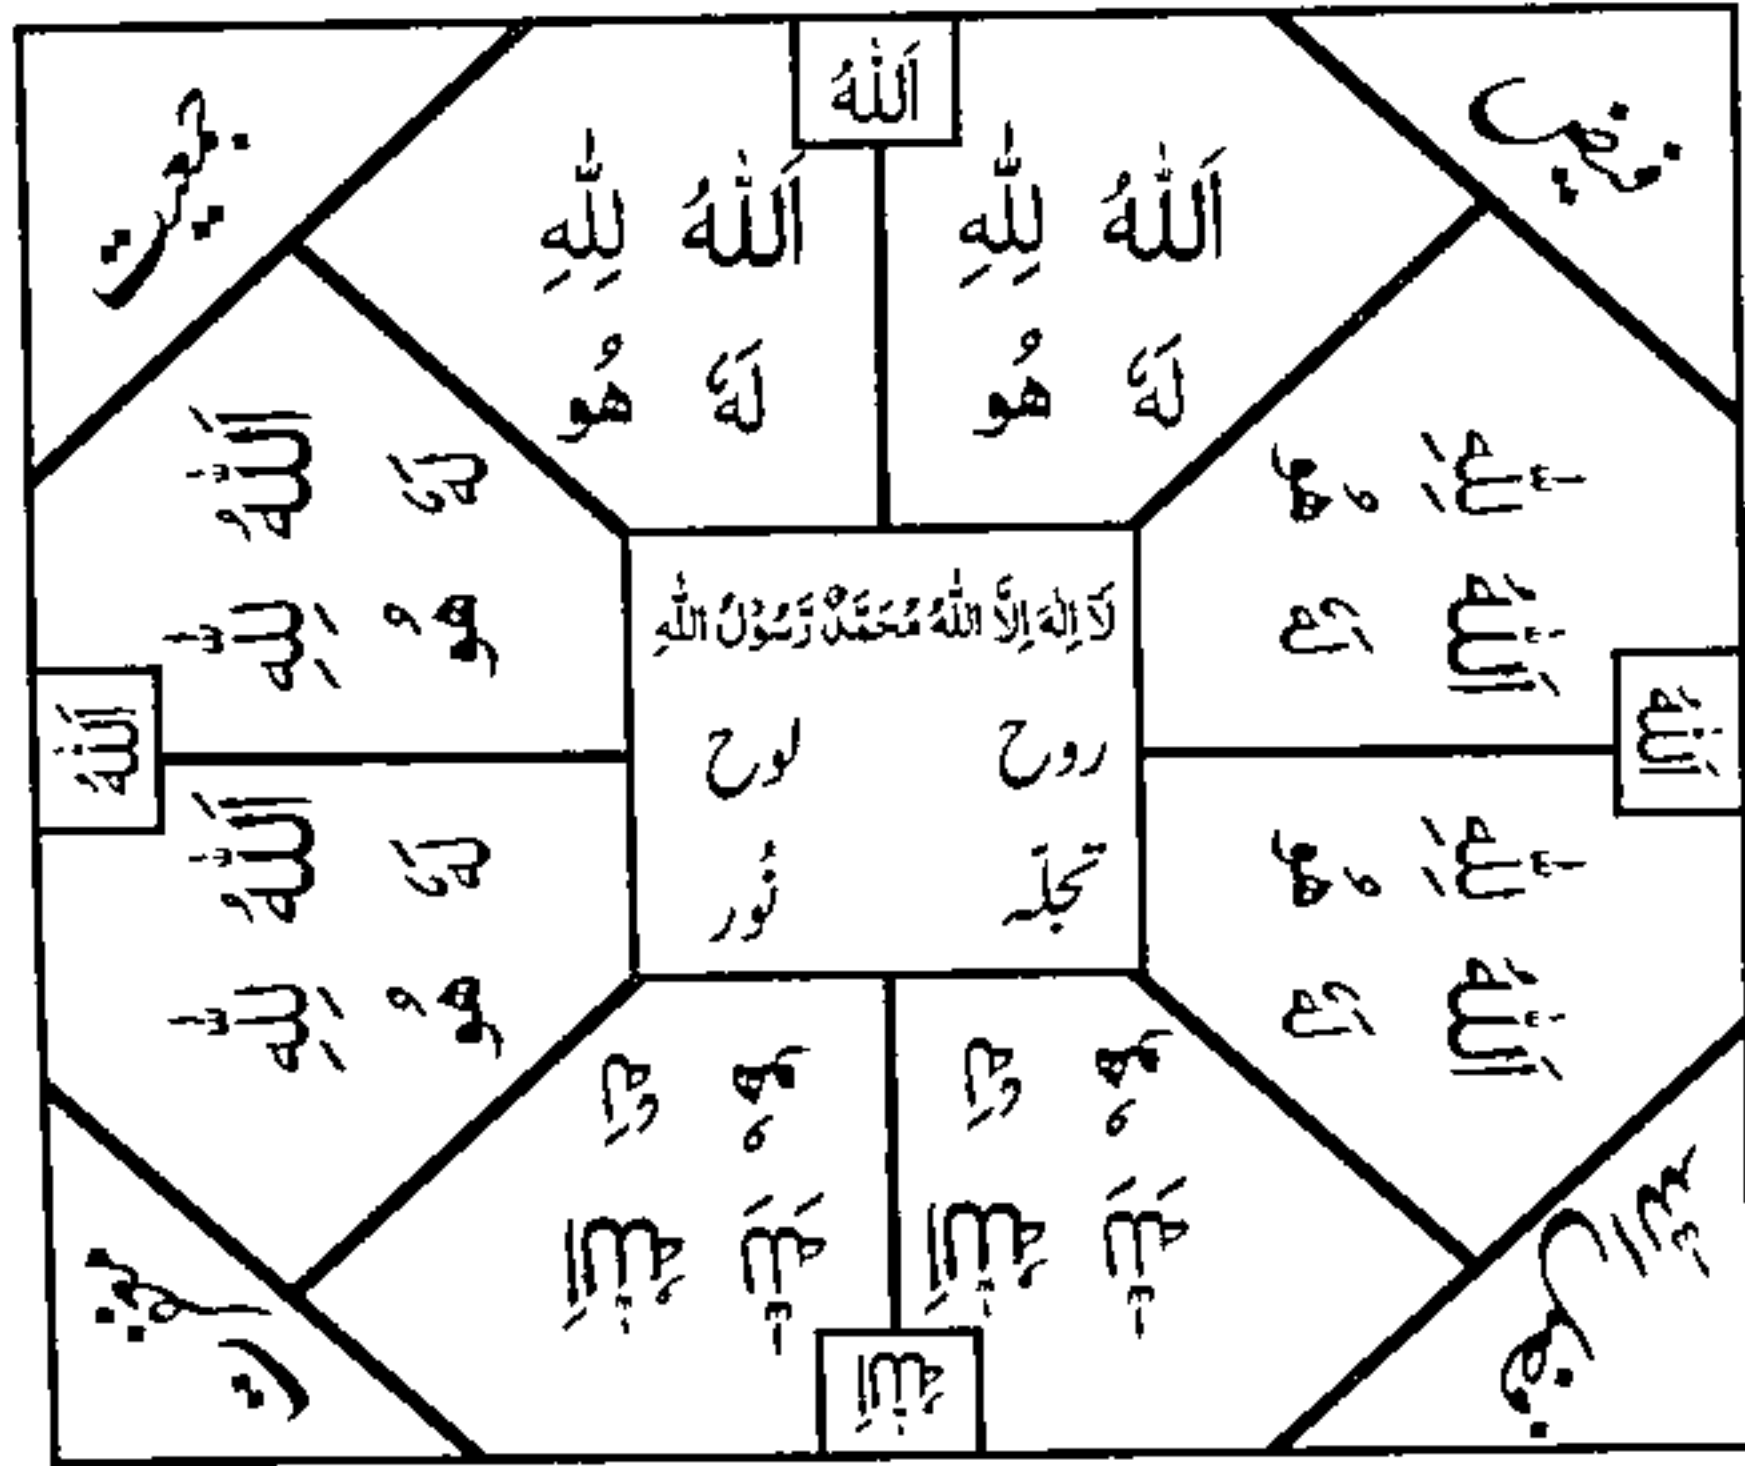 اَللّٰهُ
اَللّٰهُ لِلّٰهِ
لَهٗ هُو
اَللّٰهُ لِلّٰهِ
لَهٗ هُو
لِلّٰهِ اَللّٰهُ
هُو لَهٗ
لِلّٰهِ اَللّٰهُ
هُو لَهٗ
اَللّٰهُ
لَا اِلٰهَ اِلَّا اللّٰهُ مُحَمَّدٌ رَّسُوْلُ اللّٰهِ
روح لوح
تجلّہ نُور
اَللّٰهُ
اَللّٰهُ لِلّٰهِ
لَهٗ هُو
اَللّٰهُ لِلّٰهِ
لَهٗ هُو
اَللّٰهُ لِلّٰهِ
لَهٗ هُو
اَللّٰهُ لِلّٰهِ
لَهٗ هُو
اَللّٰهُ
فضل اللّٰه